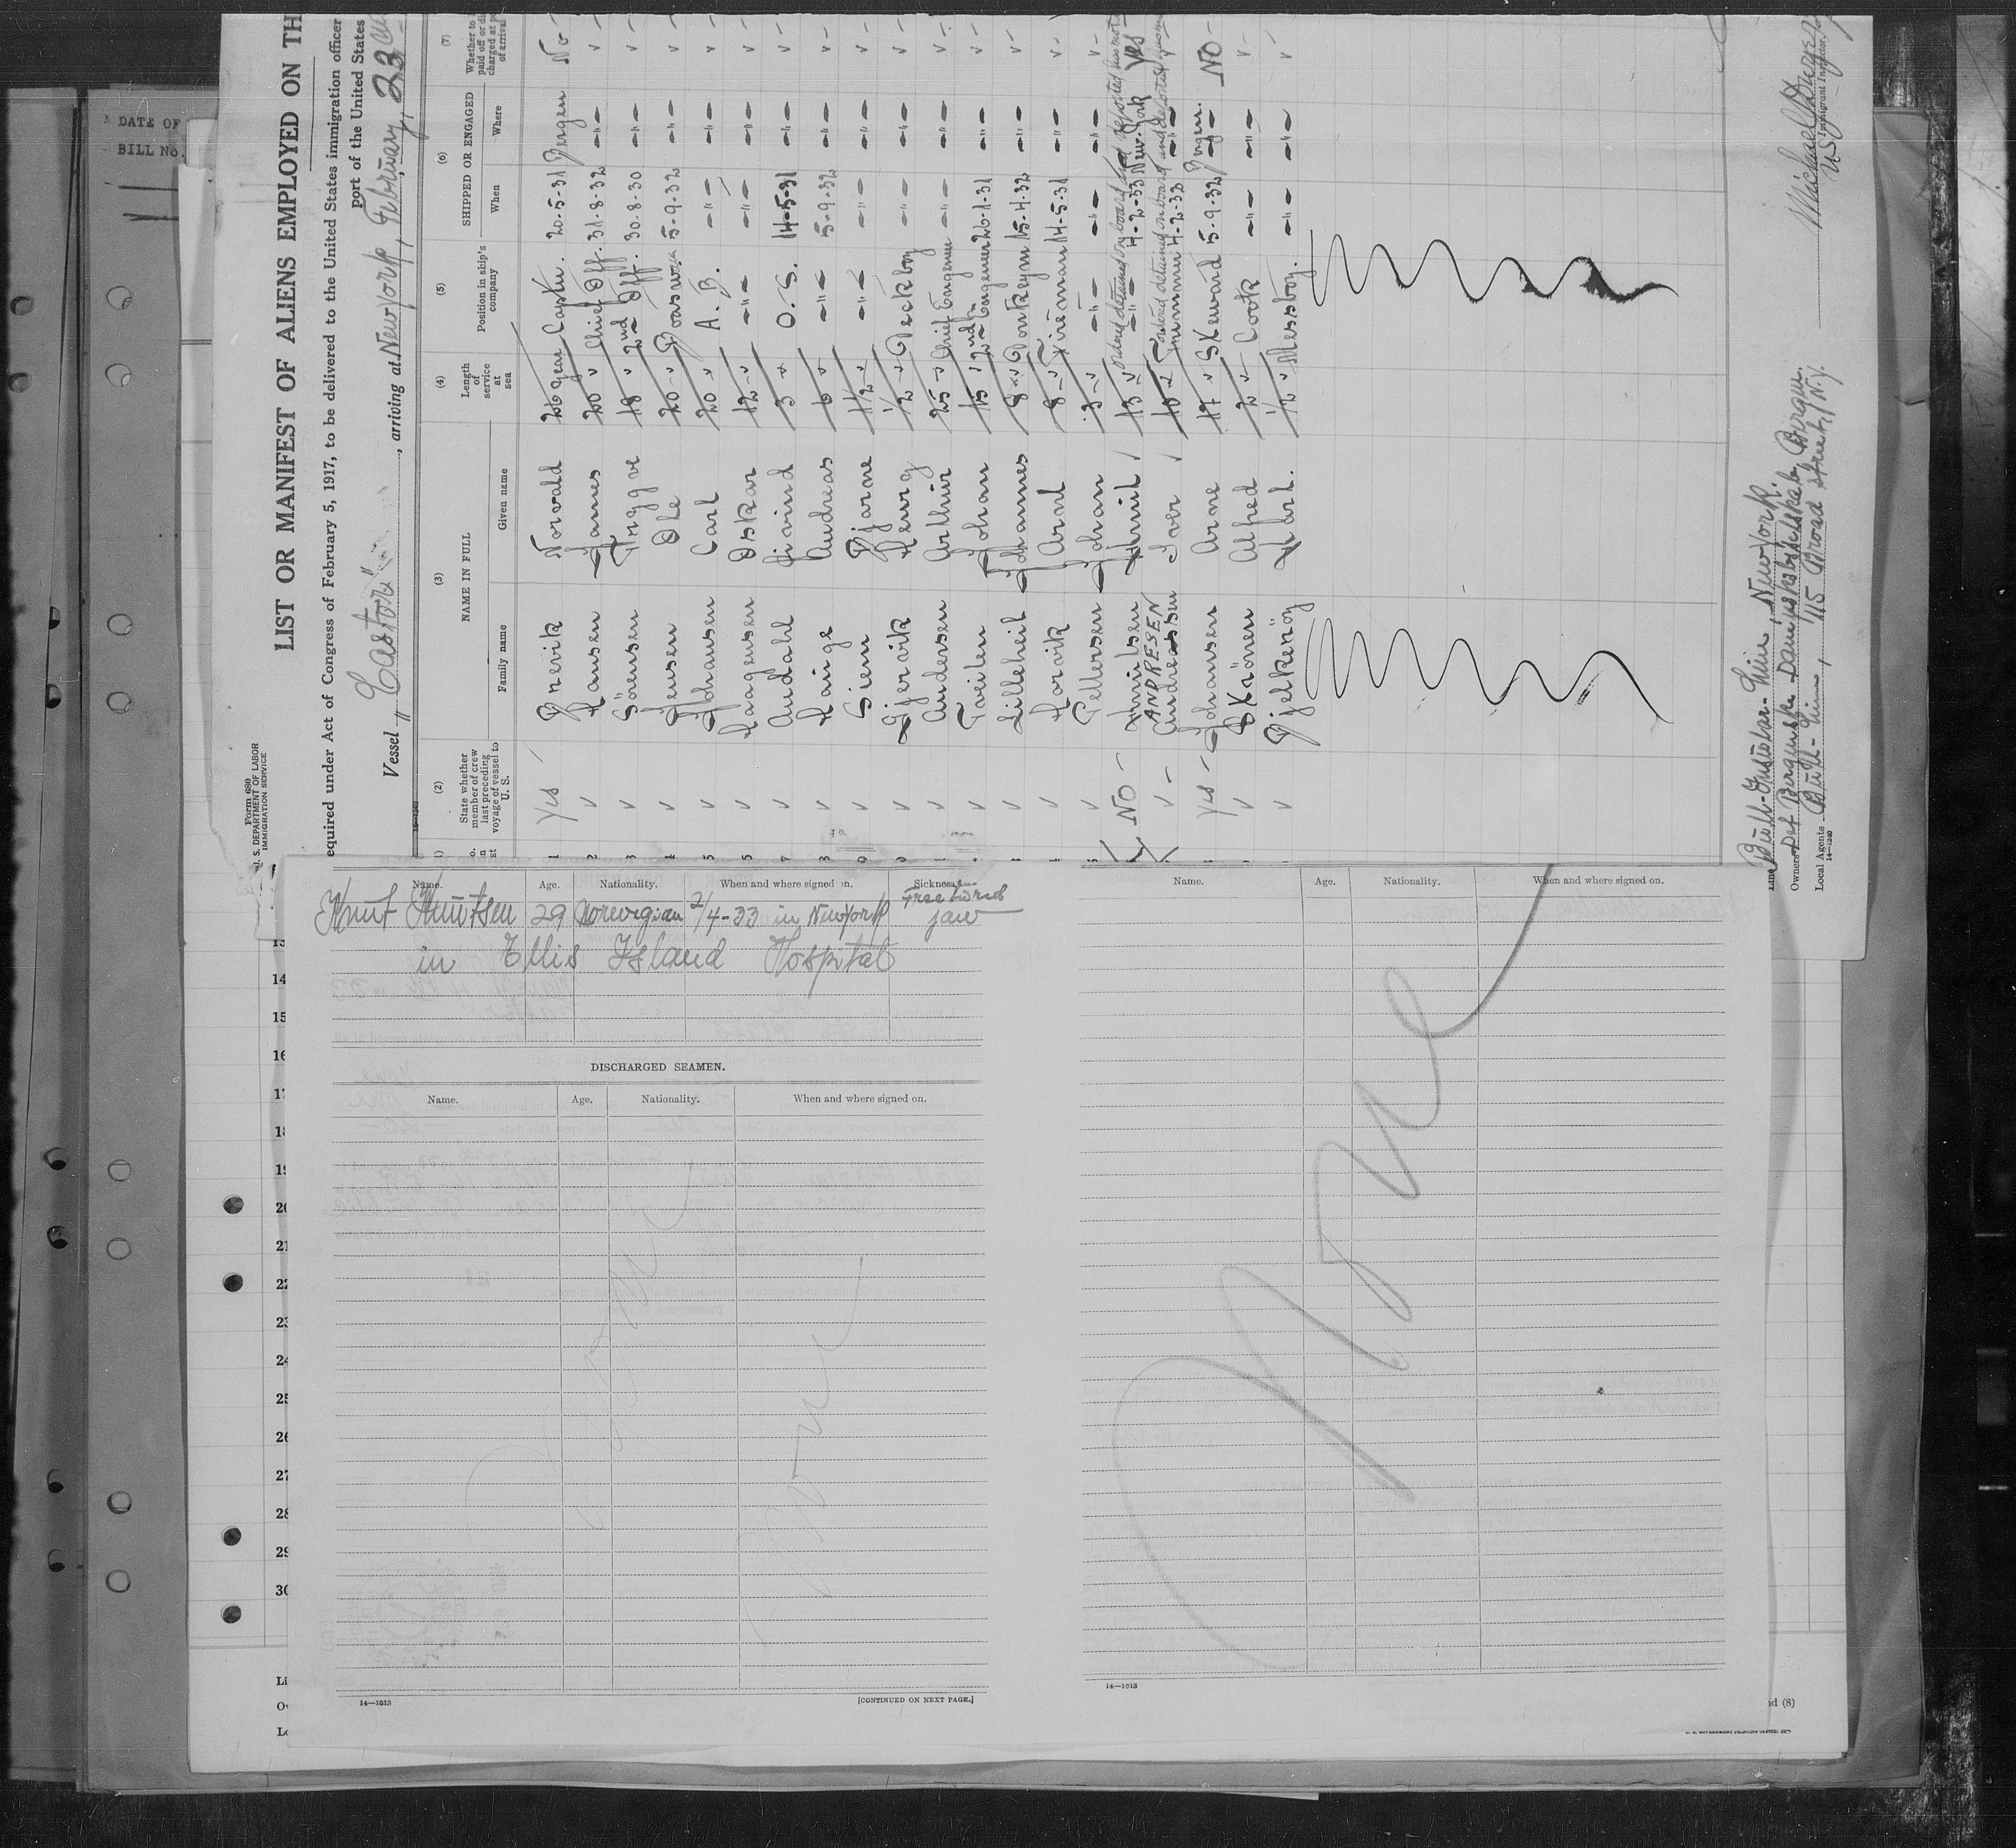 DATE OF
BILL No.
Form 680
U. S. DEPARTMENT OF LABOR
IMMIGRATION SERVICE
LIST OR MANIFEST OF ALIENS EMPLOYED ON TH
equired under Act of Congress of February 5, 1917, to be delivered to the United States immigration officer
port of the United States
Vessel „Castor", arriving at New York, February, 23
(2) State whether member of crew last preceding voyage of vessel to U. S.
(3) NAME IN FULL
Family name
Given name
(4) Length of service at sea
(5) Position in ship's company
(6) SHIPPED OR ENGAGED
When
Where
(7) Whether to paid off or di charged at po of arrival
1 Yes - Brevik Norvald 26 year Captn. 20-5-31 Bergen No -
2 v Hansen James 20 v Chief Off. 31-8-32 -"- v -
3 v Sörensen Tryggve 18 v 2nd Off. 30-8-30 -"- v -
v Jensen Ole 20 v 5-9-32 -"- v -
5 v Johansen Carl 20 v A. B. -"- -"- v -
v Haagensen Oskar 12 v -"- -"- -"- v -
v Audahl Eivind 3 v O. S. 14-5-31 -"- v -
v Hauge Andreas 6 v -"- 5-9-32 -"- v -
v Siem Bjarne 1½ v -"- -"- -"- v -
v Gjervik Henry ½ v Deckboy -"- -"- v -
v Andersen Arthur 25 v Chief Engeneer -"- -"- v -
v Tveiten Johan 15 v 2nd Engeneer 26-1-31 -"- v -
v Lilleheil Johannes 8 v Donkeym 15-4-32 -"- v -
v Horvik Arnt 8 v Fireman 14-5-31 -"- v -
v Pettersen Johan 3 v -"- -"- -"- v -
No - Knutsen Knut 13 v -"- 4-2-33 New-York Yes
ANDRESEN
v - Andreassen Iver 10 v Trimmer 4-2-33 -"-
Yes - Johansen Arne 17 v Steward 5-9-32 Bergen. No -
v Skånen Alfred 2 v Cook -"- -"- v -
v Bjelkeröy Karl. ½ v Messboy. -"- -"- v -
Line Bull-Insular-Line, New York.
Owners Det Bergenske Dampskibsselskab, Bergen.
Local Agents Bull-Line, 115 Broad Street, N.Y.
14—1240
Immigrant Inspector.
Name. Age. Nationality. When and where signed on. Sickness.
Knut Knutsen 29 Norwegian 2/4-33 in New York Fractured jaw
in Ellis Island Hospital
DISCHARGED SEAMEN.
Name. Age. Nationality. When and where signed on.
14—1613
[CONTINUED ON NEXT PAGE.]
Name. Age. Nationality. When and where signed on.
None
14—1613
14
15
16
17
18
19
20
21
22
23
24
25
26
27
28
29
30
nd (8)